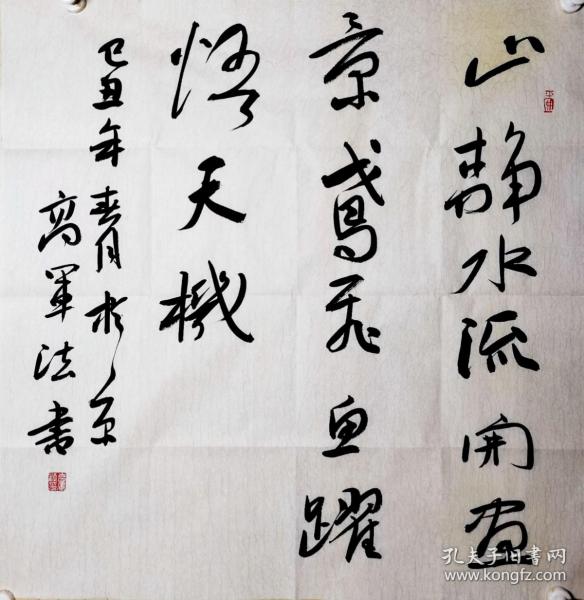 山静水流開畫
景鳶飛魚躍
悟天機
己丑年春月於京
高軍法書
孔夫子旧书网
www.kongfz.com